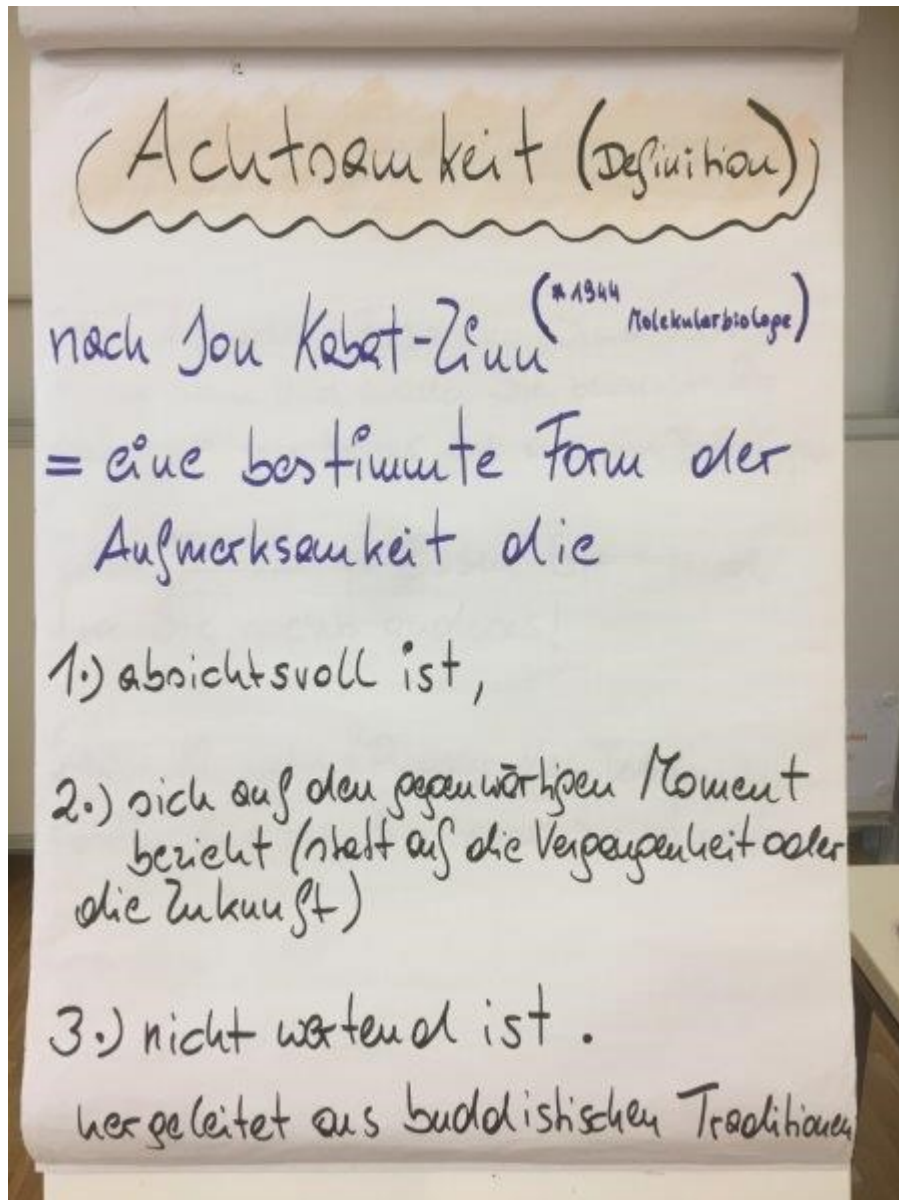 Achtsamkeit (Definition)
nach Jon Kabat-Zinn (*1944 Molekularbiologe)
= eine bestimmte Form der
Aufmerksamkeit die
1.) absichtsvoll ist,
2.) sich auf den gegenwärtigen Moment
bezieht (statt auf die Vergangenheit oder
die Zukunft)
3.) nicht wertend ist.
hergeleitet aus buddistischen Traditionen